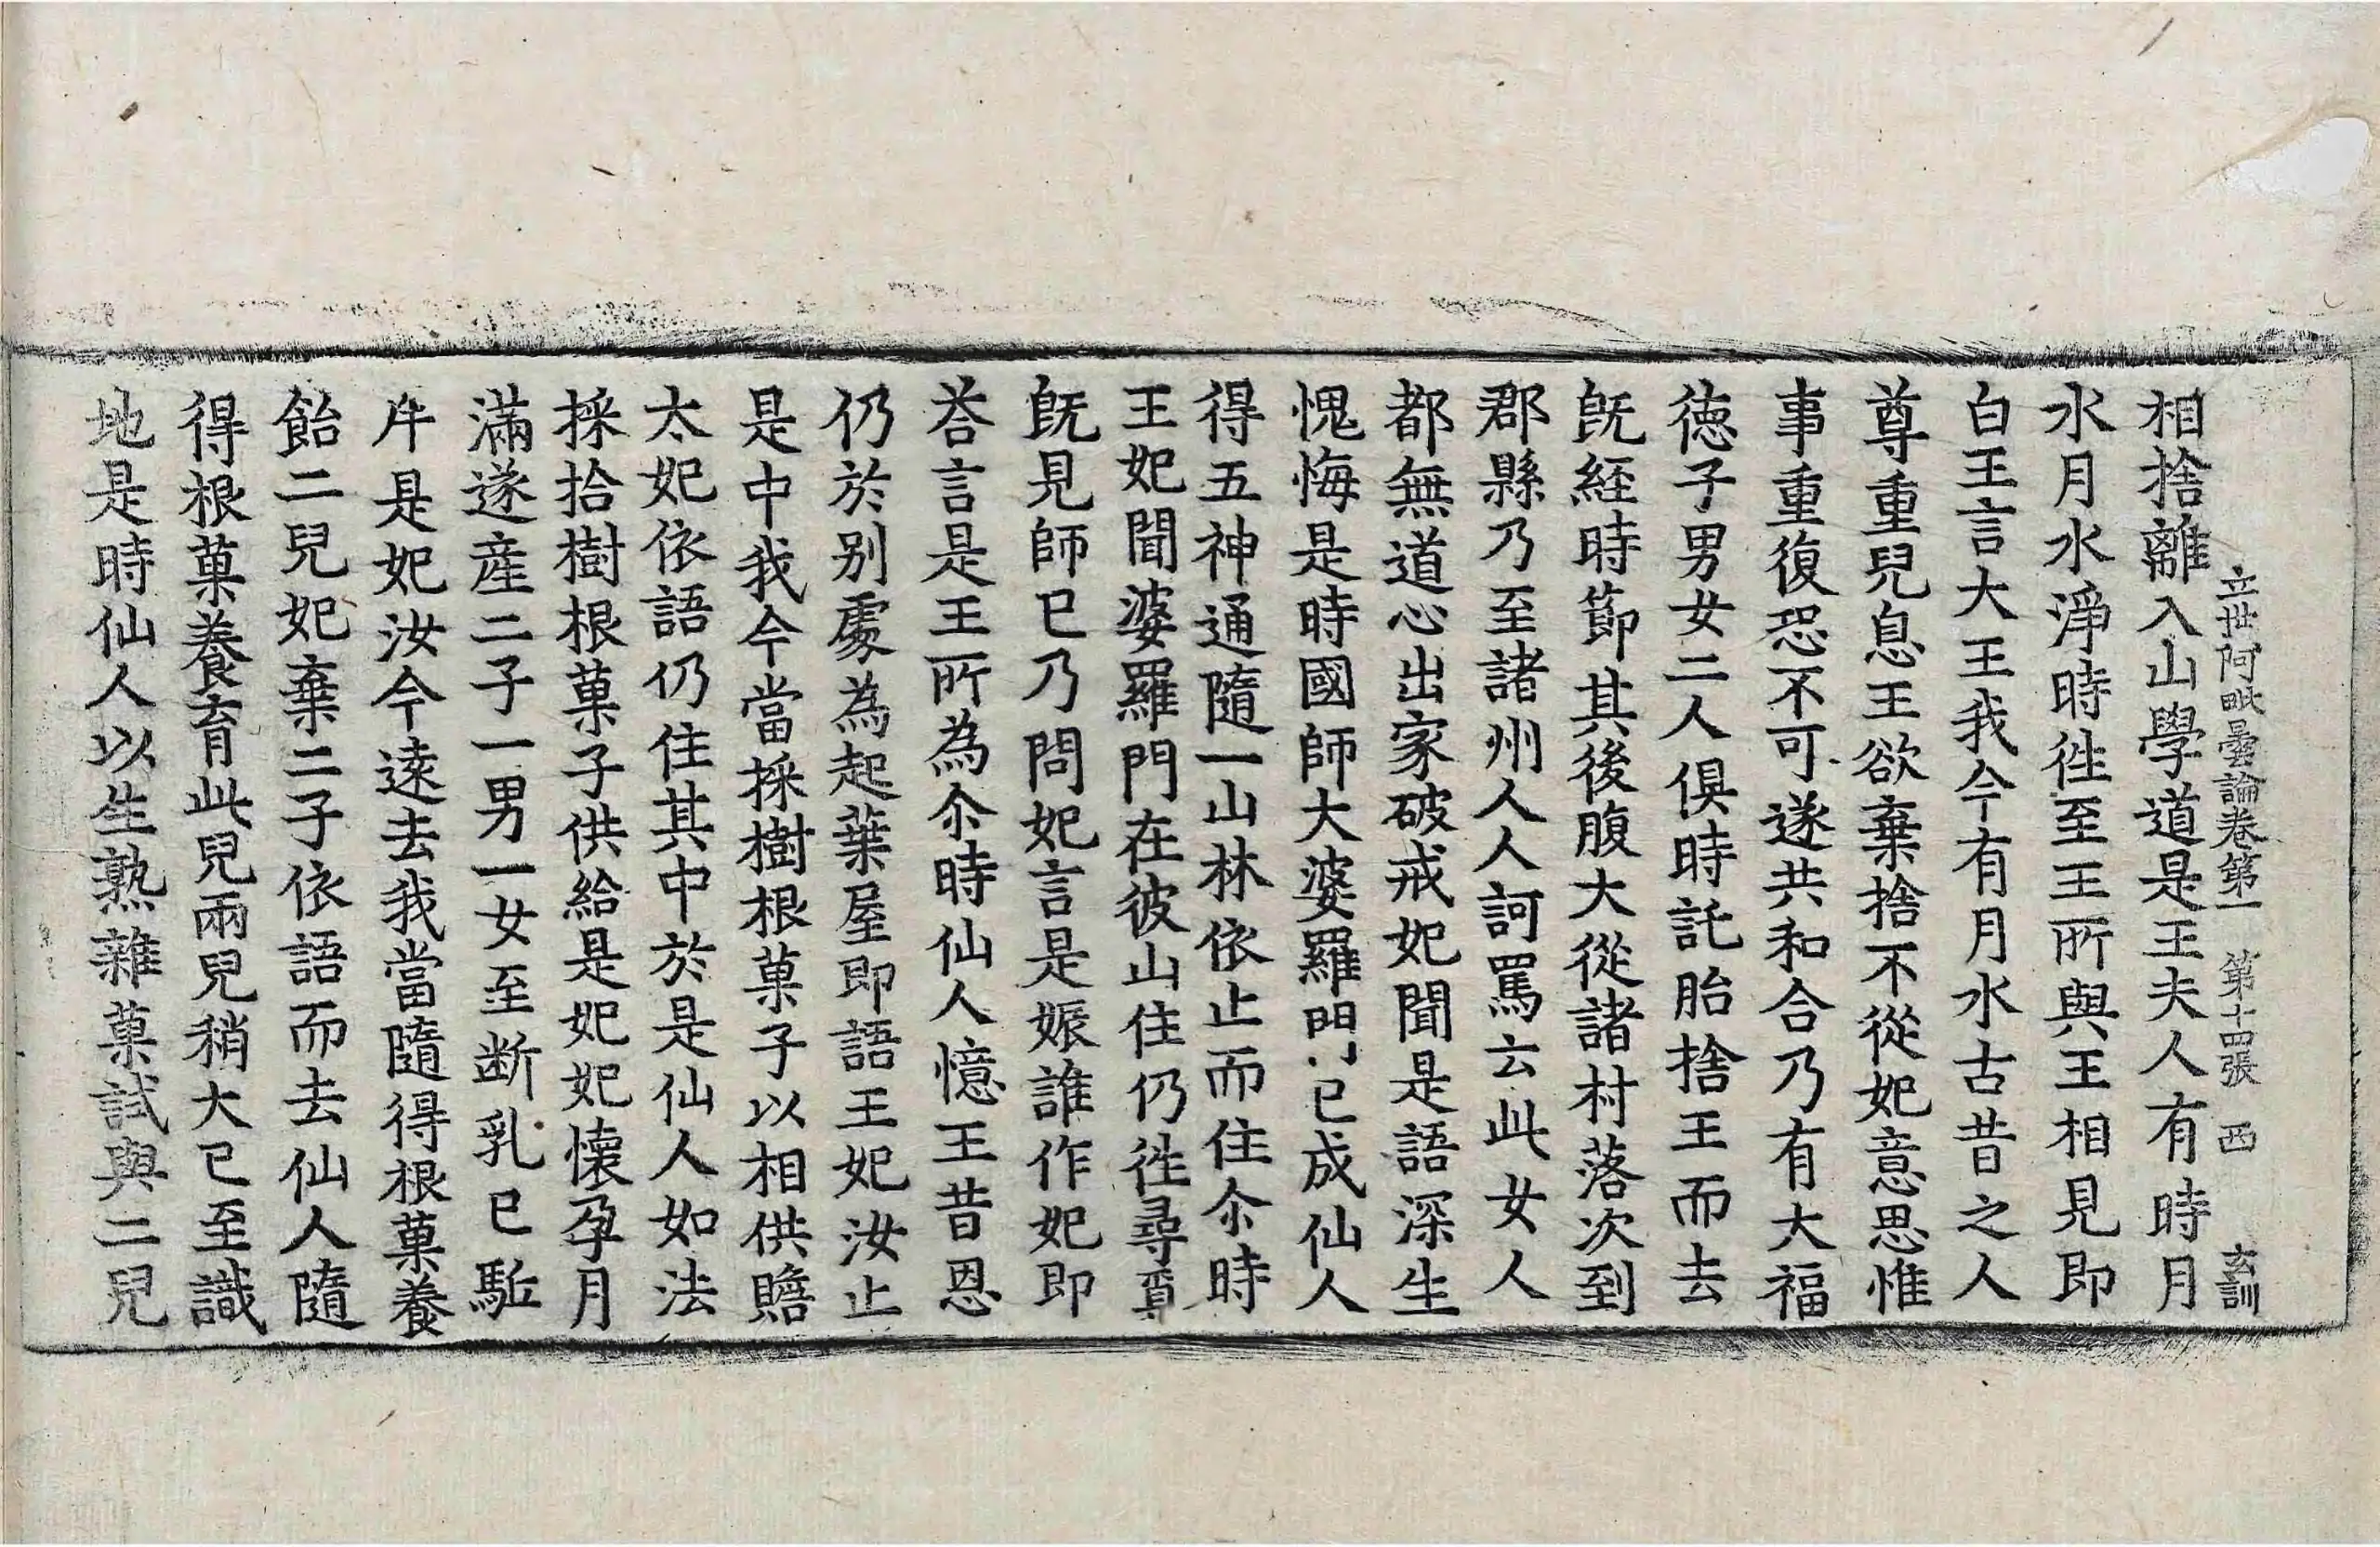 立世阿毗曇論卷第一　第十四張　西　玄訓
相捨離入山學道是王夫人有時月
水月水淨時徃至王所與王相見即
白王言大王我今有月水古昔之人
尊重兒息王欲棄捨不從妃意思惟
事重復恐不可遂共和合乃有大福
徳子男女二人俱時託胎捨王而去
旣經時節其後腹大從諸村落次到
郡縣乃至諸州人人訶罵云此女人
都無道心出家破戒妃聞是語深生
愧悔是時國師大婆羅門已成仙人
得五神通隨一山林依止而住尒時
王妃聞婆羅門在彼山住仍徃尋覔
旣見師已乃問妃言是娠誰作妃即
荅言是王所為尒時仙人憶王昔恩
仍於别處為起葉屋即語王妃汝止
是中我今當採樹根菓子以相供贍
太妃依語仍住其中於是仙人如法
採拾樹根菓子供給是妃妃懷孕月
滿遂産二子一男一女至断乳已駈
斥是妃汝今逺去我當隨得根菓養
飴二兒妃棄二子依語而去仙人隨
得根菓養育此兒兩兒稍大已至識
地是時仙人以生熟雜菓試與二兒